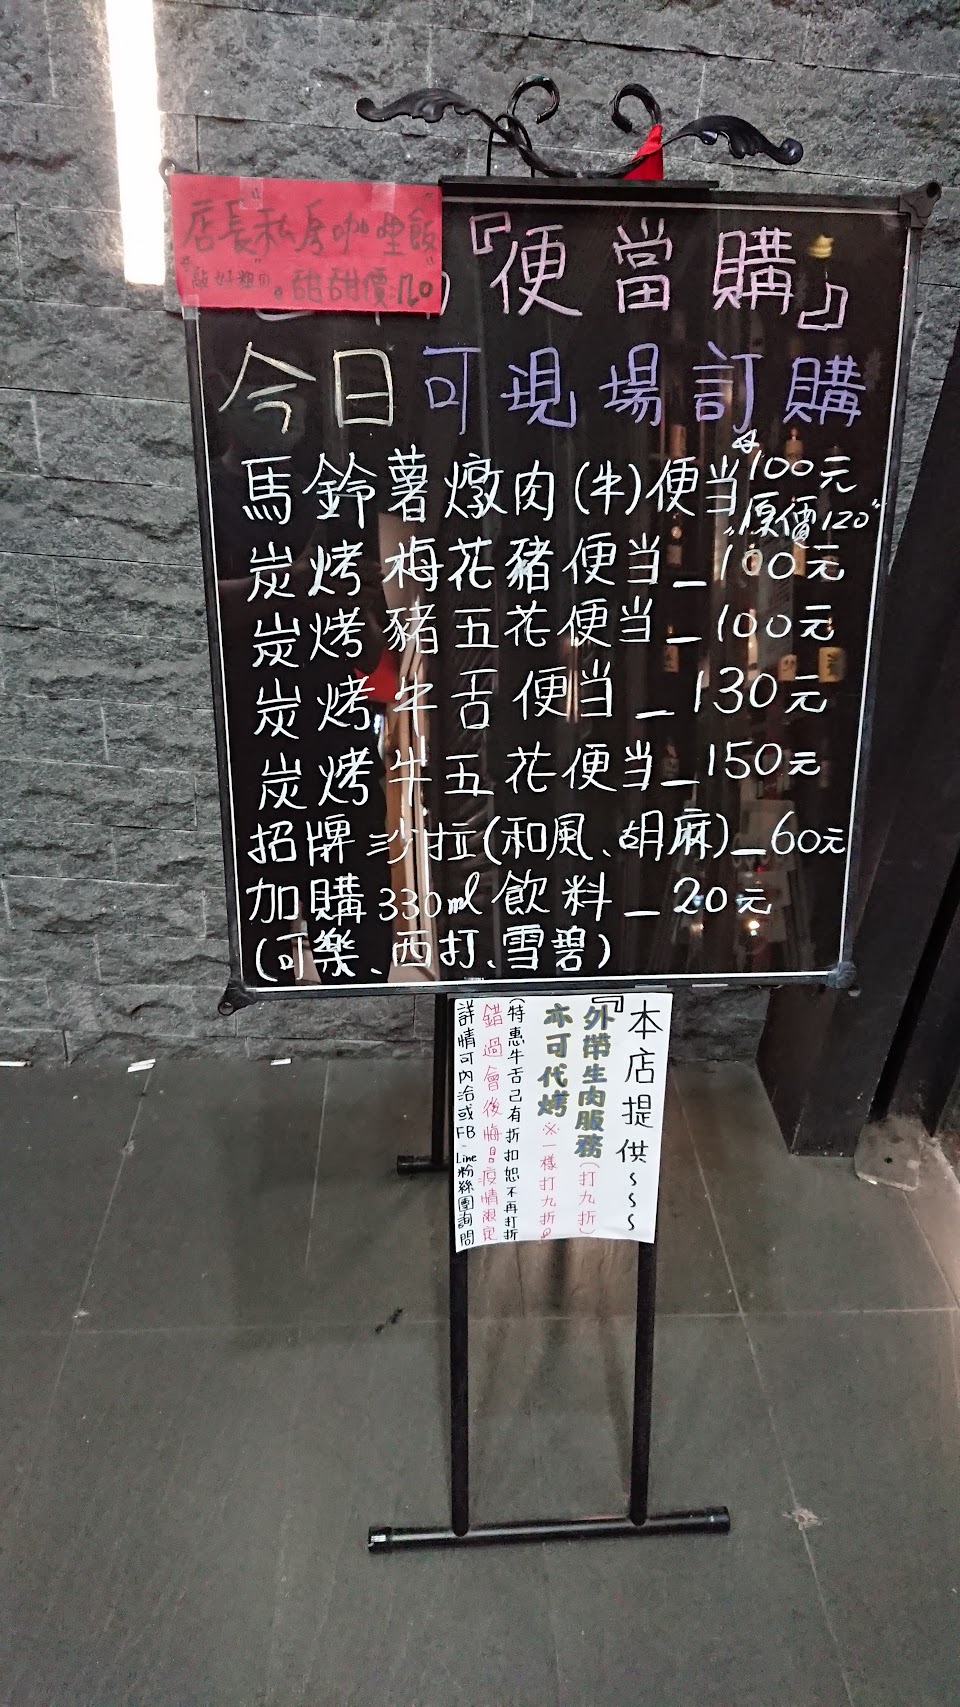 店長"私房咖哩飯"
"敲好粗"。甜甜價:120
『便當購』
今日可現場訂購
馬鈴薯燉肉(牛)便当100元
"原價120"
炭烤梅花豬便当_100元
炭烤豬五花便当_100元
炭烤牛舌便当_130元
炭烤牛五花便当_150元
招牌沙拉(和風、胡麻)_60元
加購330ml飲料_20元
(可樂、西打、雪碧)
本店提供~~~
『外帶生肉服務(打九折)
亦可代烤※一樣打九折
(特惠牛舌己有折扣恕不再打折
錯過會後悔 疫情限定
詳情可內洽或FB、Line粉絲團詢問